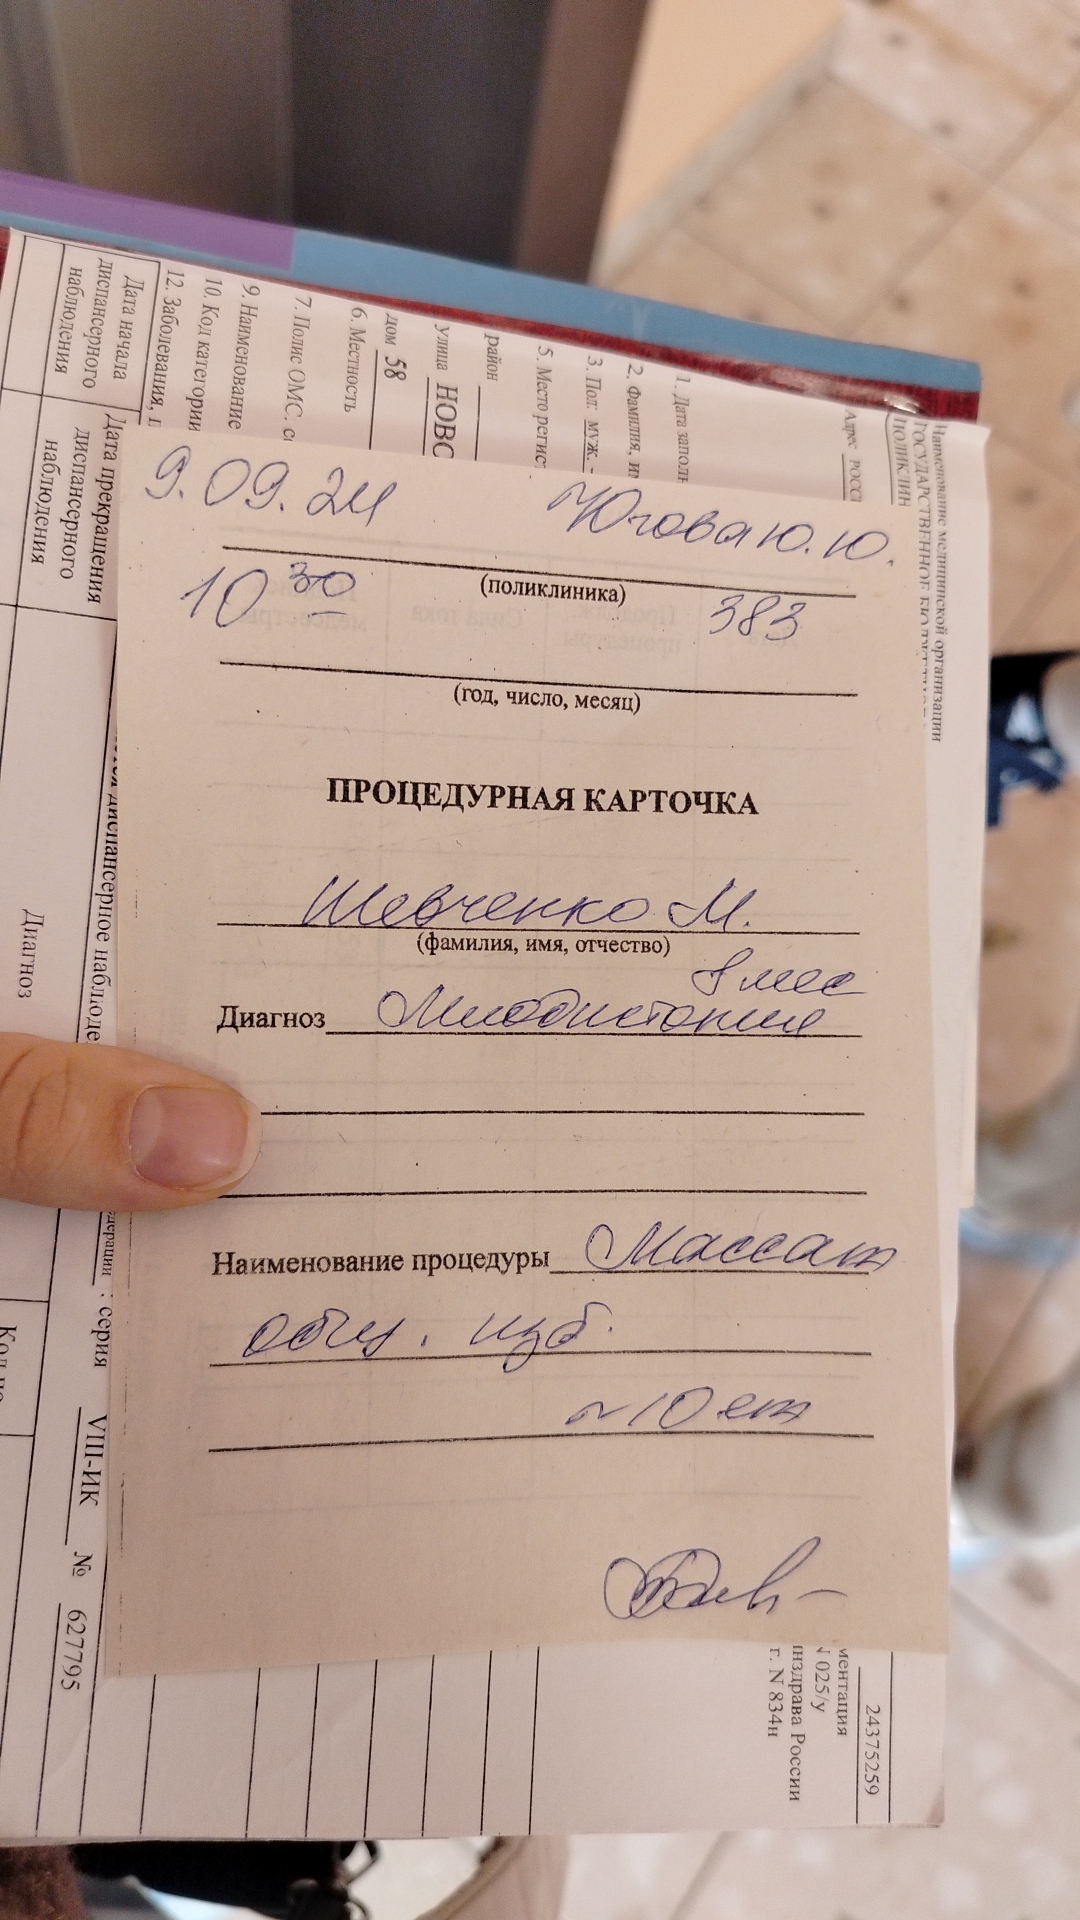 9.09.24 Юговаю.ю.
(поликлиника)
10 30 383
(год, число, месяц)
ПРОЦЕДУРНАЯ КАРТОЧКА
Шевченко М.
(фамилия, имя, отчество)
8 мес
Диагноз Миодистония
Наименование процедуры Массаж
общ.
№10
Наименование медицинской организации
ГОСУДАРСТВЕННОЕ
ПОЛИКЛИН
Адрес РОССИ
1. Дата заполн
2. Фамилия, им
3. Пол: муж. -
5. Место регис
район
улица НОВО
дом 58
6. Местность
7. Полис ОМС. се
9. Наименование
10. Код категории
12. Заболевания,
Дата начала
диспансерного
наблюдения
Дата прекращения
диспансерного
наблюдения
Диагноз
диспансерное наблюде
дерации : серия VIII-ИК № 627795
24375259
ментация
N 025/у
инздрава России
г. N 834н